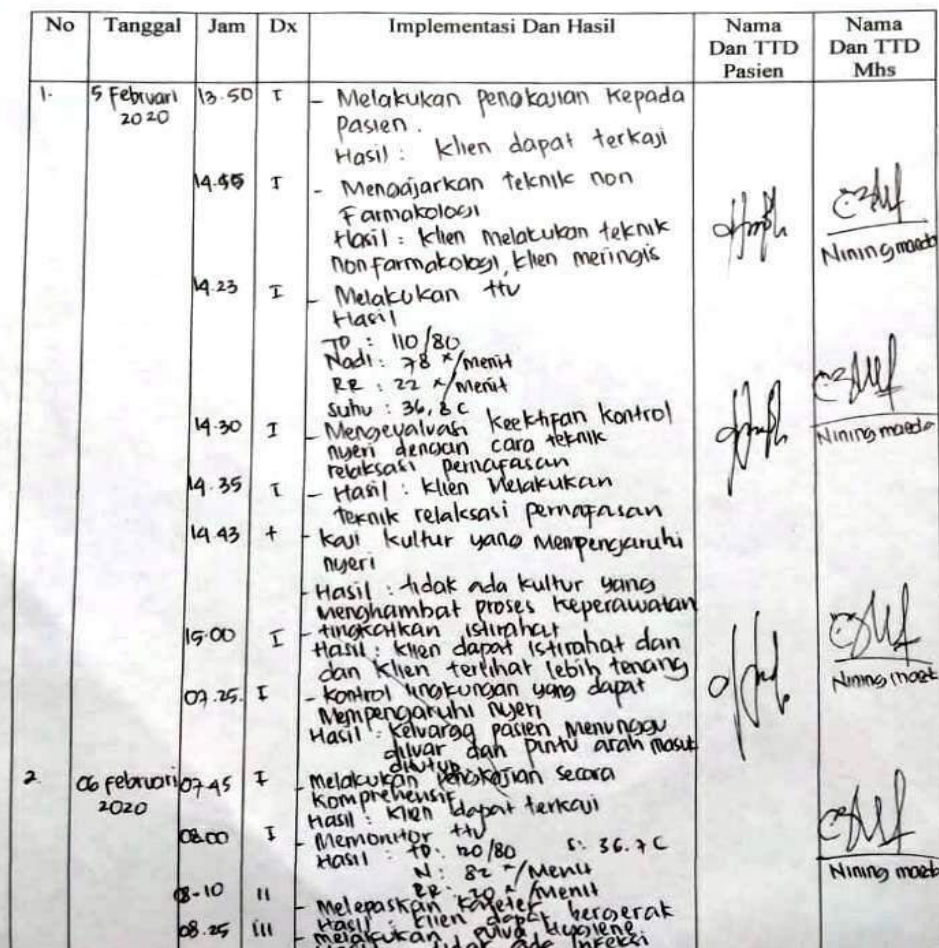 No Tanggal Jam Dx Implementasi Dan Hasil Nama Dan TTD Pasien Nama Dan TTD Mhs
1. 5 Februari 2020 13.50 I - Melakukan pengkajian Kepada
pasien.
Hasil : Klien dapat terkaji
I - Mengajarkan teknik non
Farmakologi
Hasil : Klien melakukan teknik
non farmakologi, klien meringis
Nining maeda
14.23 I - Melakukan ttv
Hasil
TD : 110/80
Nadi : 78 x/menit
RR : 22 x/menit
Suhu : 36,8 C
14.30 I - Mengevaluasi keektifan kontrol
nyeri dengan cara teknik
relaksasi pernafasan
Nining maeda
14.35 I - Hasil : klien Melakukan
teknik relaksasi pernafasan
14.43 + - Kaji kultur yang Mempengaruhi
nyeri
- Hasil : tidak ada kultur yang
menghambat proses keperawatan
15.00 I - tingkatkan istirahat
Hasil : klien dapat istirahat dan
dan klien terlihat lebih tenang
Nining
07.25. I - Kontrol lingkungan yang dapat
Mempengaruhi nyeri
Hasil : Keluarga pasien Menunggu
diluar dan pintu arah masuk
ditutup
2. 06 februari 2020 07.45 I - Melakukan pengkajian secara
Komprehensif
Hasil : Klien dapat terkaji
08.00 I - Memonitor ttv
Hasil : TD : 120/80 S : 36.7 C
N : 82 x/Menit
RR : 20 x/menit
Nining
08-10 II - Melepaskan
Hasil : klien dapat bergerak
08.25 III - melakukan Hygiene
tidak ada infeksi